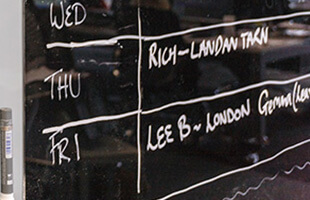 WED
THU RICH - LANDAN TARN
FRI LEE B ~ LONDON Gemma